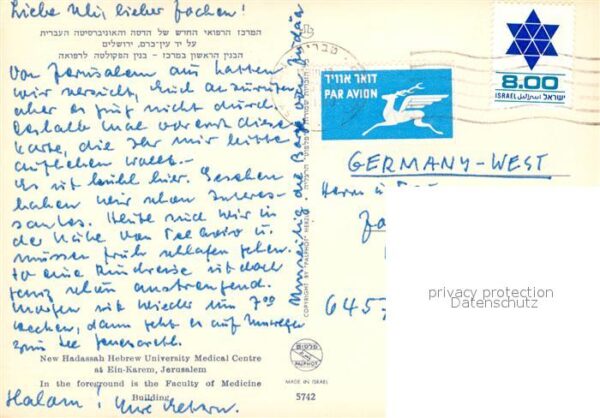 Liebe Uli, lieber Jochen!
המרכז הרפואי החדש של הדסה והאוניברסיטה העברית
על יד עין־כרם, ירושלים
הבנין הראשון במרכז - בנין הפקולטה לרפואה
Von Jerusalem aus hatten
wir versucht, Euch anzurufen
aber es ging nicht durch.
Deshalb mal vorerst diese
Karte, die Ihr mir bitte
aufheben wollt.-
Es ist kühl hier. Gesehen
haben wir schon Interes-
santes. Heute sind wir in
der Nähe von und
müssen früh schlafen gehen.
so eine Rundreise ist doch
ganz schön anstrengend.
Morgen wird wieder um 7 00
wecken, dann geht es auf
zum See Genezareth.
New Hadassah Hebrew University Medical Centre
at Ein-Karem, Jerusalem
In the foreground is the Faculty of Medicine
Building
Shalom!
die Berge von Judäa
COPYRIGHT BY PALPHOT
פלפוט
PALPHOT
MADE IN ISRAEL
5742
דואר אויר
PAR AVION
8.00
ISRAEL اسرائيل ישראל
GERMANY-WEST
645
privacy protection
Datenschutz